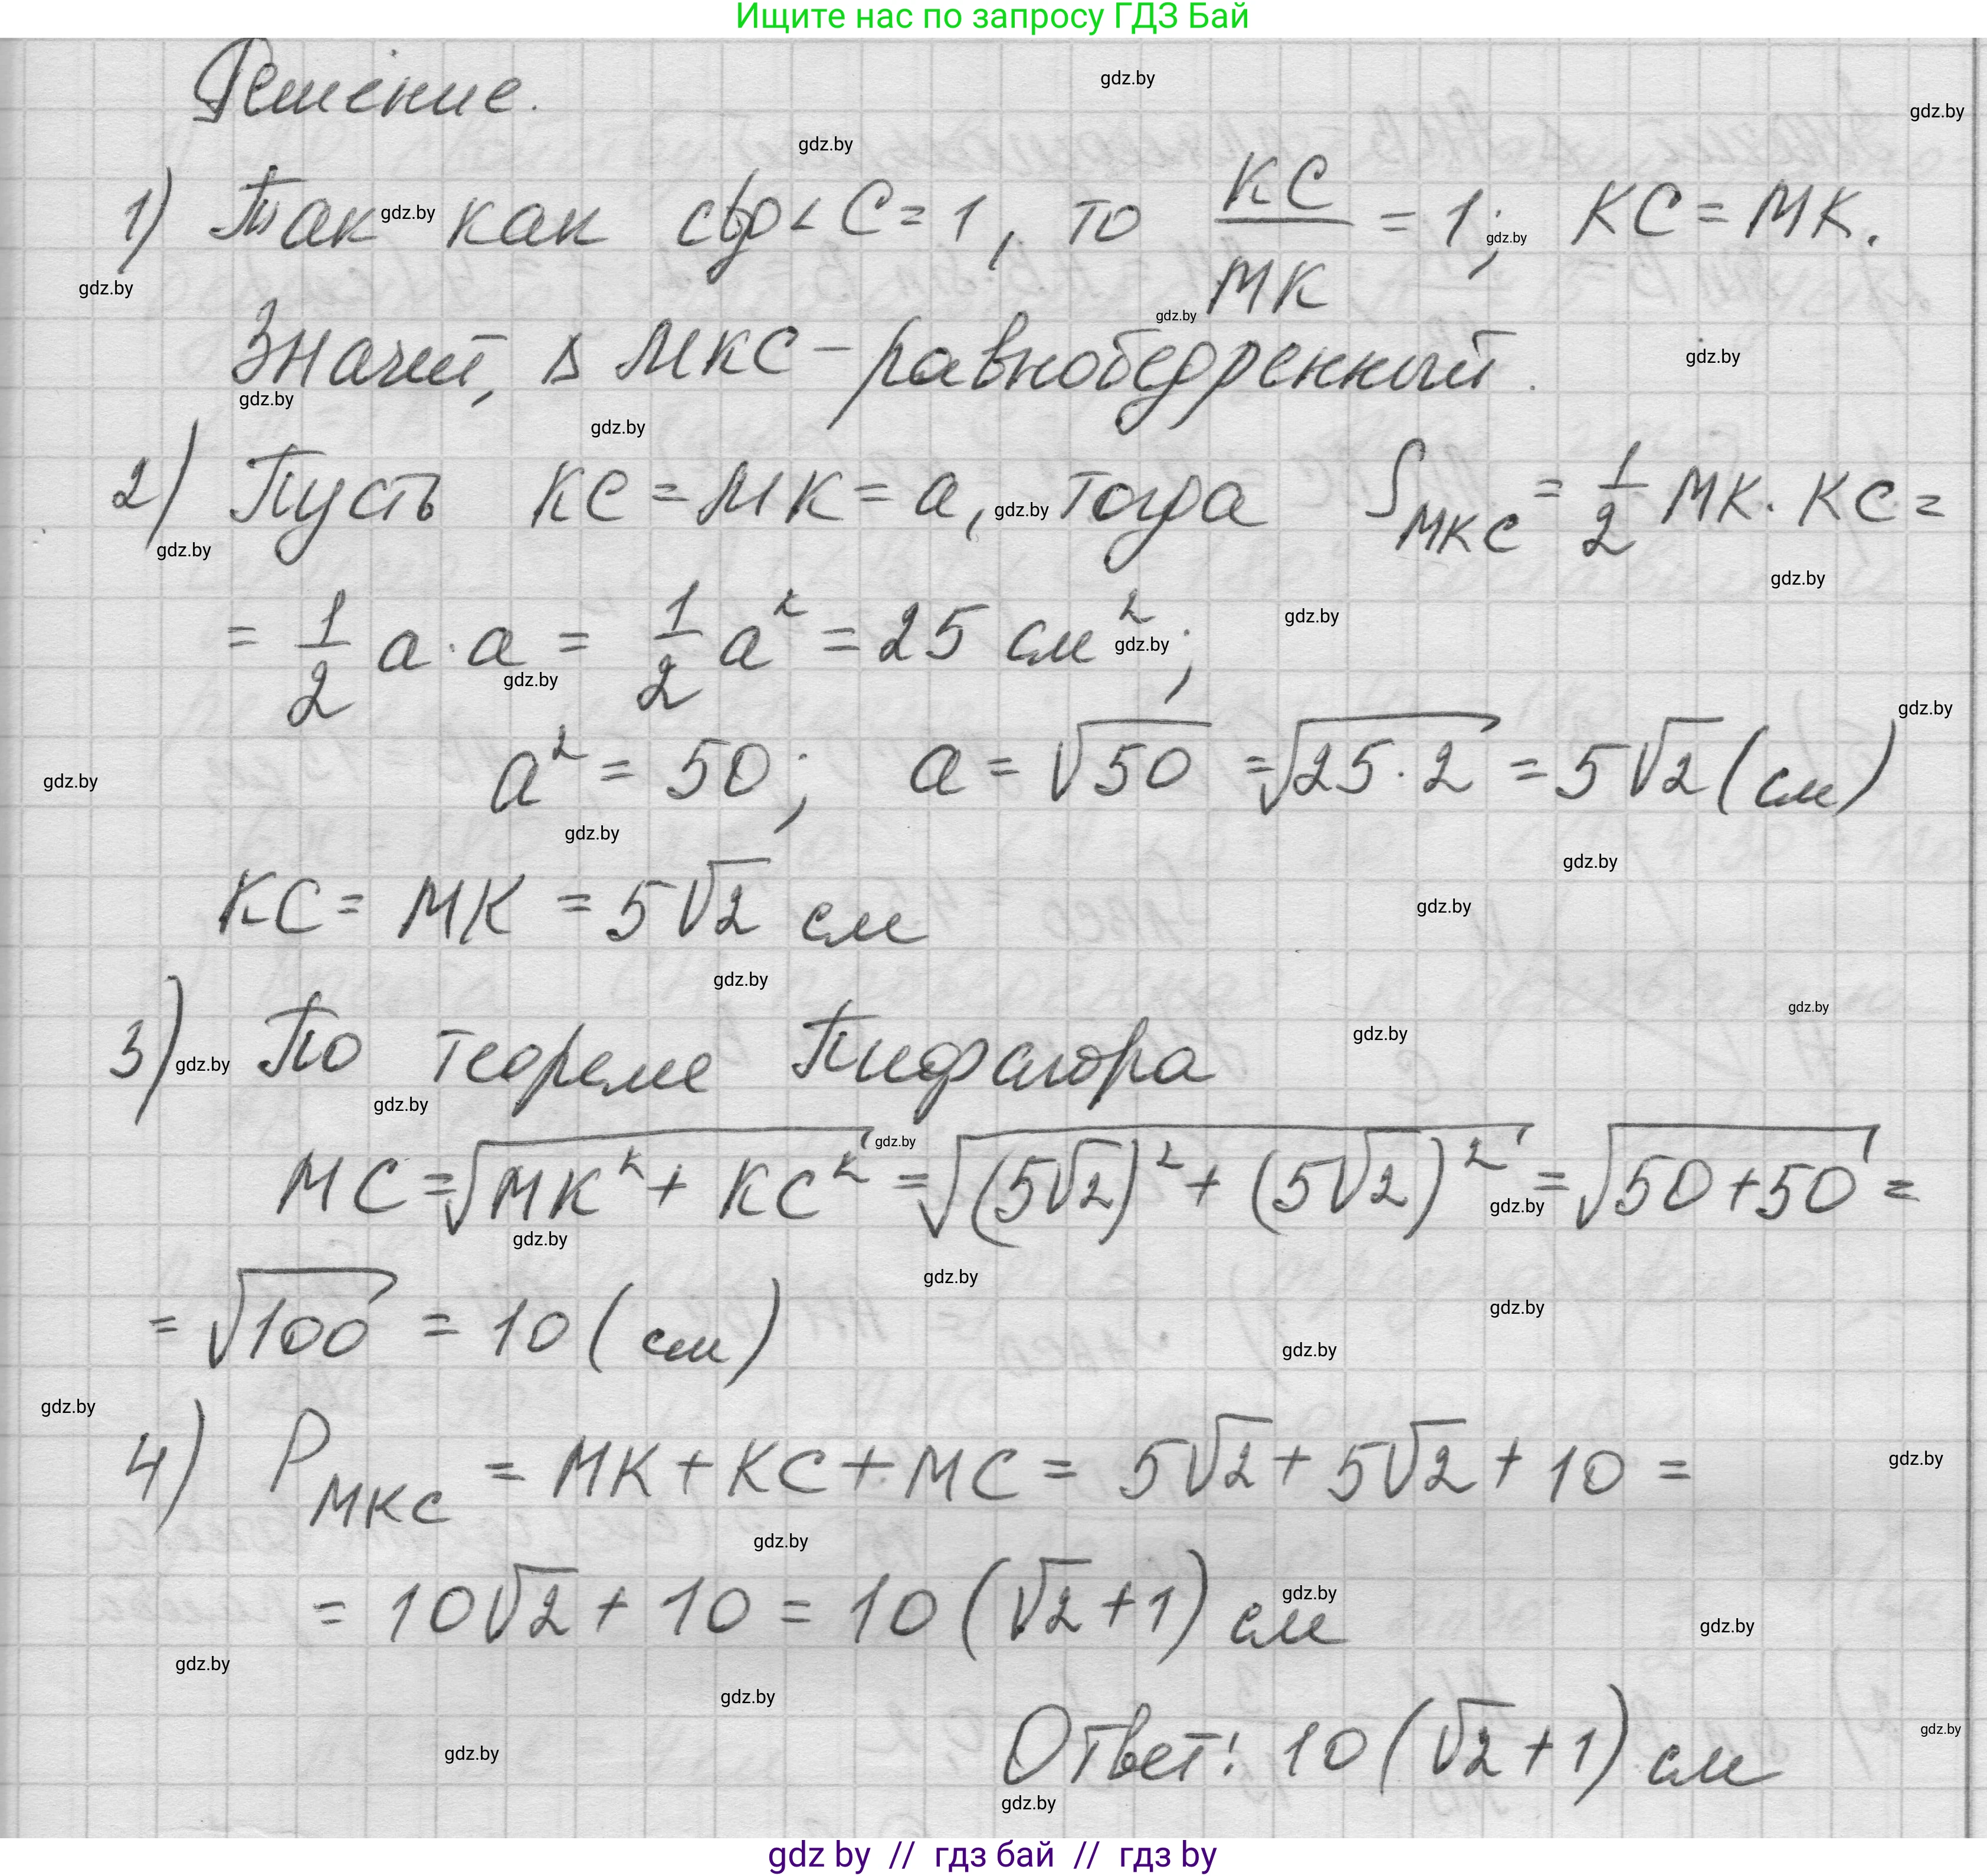 Ищите нас по запросу ГДЗ Бай
Решение.
gdz.by
gdz.by
gdz.by
1) Так как ctg∠C = 1, то KC/MK = 1; KC = MK.
gdz.by
gdz.by
gdz.by
gdz.by
Значит, Δ MKC – равнобедренный.
gdz.by
gdz.by
gdz.by
2) Пусть KC = MK = a, тогда S_MKC = 1/2 MK · KC =
gdz.by
gdz.by
gdz.by
= 1/2 a · a = 1/2 a² = 25 см²;
gdz.by
gdz.by
gdz.by
gdz.by
a² = 50; a = √50 = √25·2 = 5√2 (см)
gdz.by
gdz.by
gdz.by
KC = MK = 5√2 см
gdz.by
gdz.by
gdz.by
3) По теореме Пифагора
gdz.by
gdz.by
gdz.by
gdz.by
MC = √MK² + KC² = √(5√2)² + (5√2)² = √50+50 =
gdz.by
gdz.by
gdz.by
gdz.by
= √100 = 10 (см)
gdz.by
gdz.by
gdz.by
4) P_MKC = MK + KC + MC = 5√2 + 5√2 + 10 =
gdz.by
gdz.by
= 10√2 + 10 = 10 (√2 + 1) см
gdz.by
gdz.by
gdz.by
gdz.by
Ответ: 10 (√2 + 1) см
gdz.by
gdz.by
gdz.by
gdz by // гдз бай // гдз by